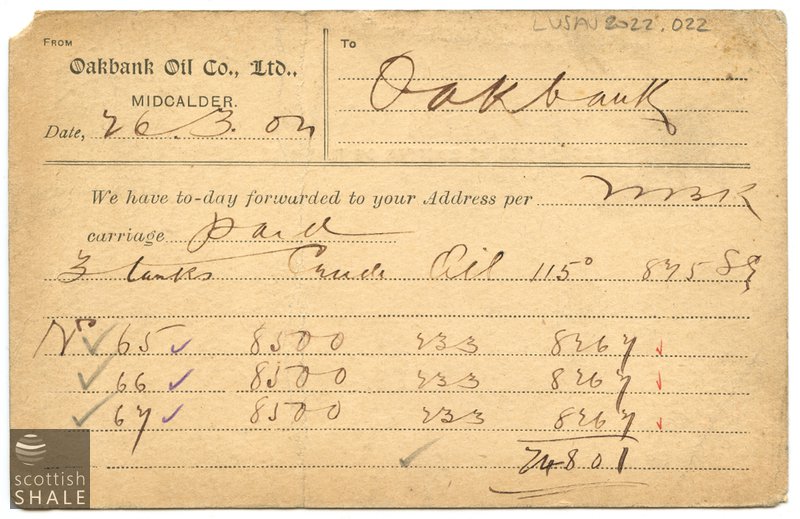 LVSAV2022.022
FROM
Oakbank Oil Co., Ltd.,
MIDCALDER.
Date, 26.3.02
To
Oakbank
We have to-day forwarded to your Address per
carriage paid
3 tanks Crude Oil 115° 875 SG
No 65 8500 233 8267
66 8500 233 8267
67 8500 233 8267
24801
scottish
SHALE